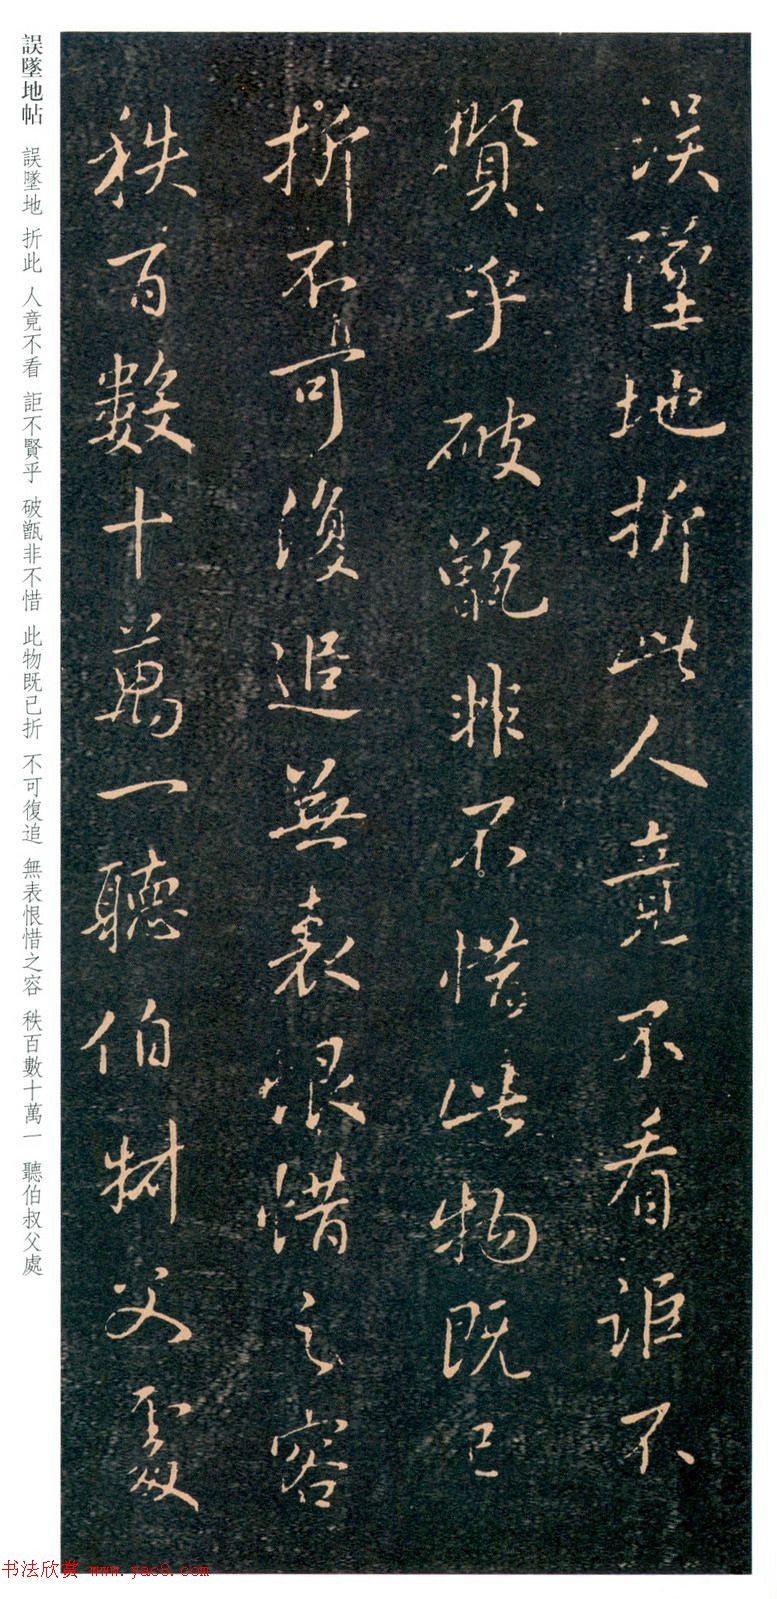 误墜地折此人竟不看詎不
賢乎破甑非不惜此物既已
折不可復追無表恨惜之容
秩百數十萬一聽伯叔父處
誤墜地帖 誤墜地 折此 人竟不看 詎不賢乎 破甑非不惜 此物既已折 不可復追 無表恨惜之容 秩百數十萬一 聽伯叔父處
书法欣赏 www.yac8.com